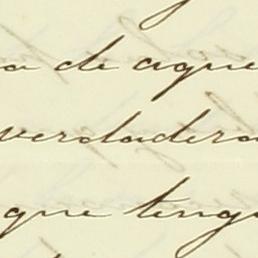 a de aque
verdadera
que teng